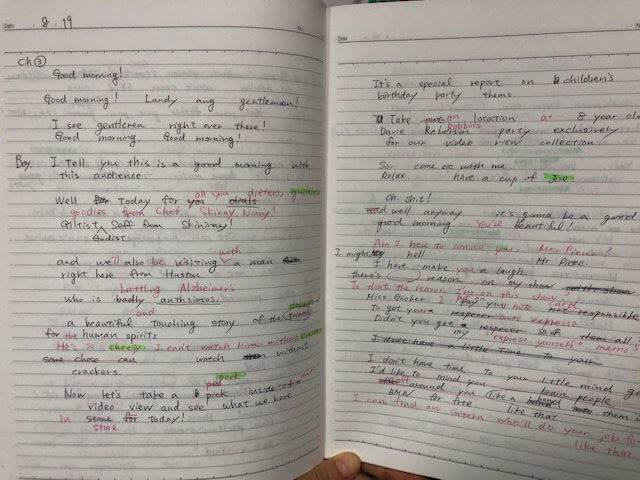 Date 8.19
No.
Ch ③
Good morning!
Good morning! Landy ang gentlemen!
I see gentleren right over there!
Good morning. Good morning!
Boy I Tell you this is a good morning with
this audience.
all you dieters, guiltless
Well for Today for you
goodies from Chef Skinny Ninny!
from Skininny!
Godist
with
and we'll also be visiting a man
right here from Huston
battling Alzheimer's
who is badly authsimos.
and
a beautiful Touching story of the
for the human spirits
He's so cheesy I can't watch him without
chese can watch without
crackers.
peek
Now let's take a pick inside of a our
video view and see what we have
in for today!
store
Date
It's a special report on children's
birthday party thems.
Take on location at 8 year old
Robbin's
Davie Roberson party exclusively
for our video view collection
So, come with me...
Relax. have a cup of Joe
Oh shit!
well anyway, it's gonna be a good
good morning. You're beautiful!
Am I here to amuse you, Mrs Pierce?
I might hell Mr Picke.
I have make you a laugh
there's reason, on my show
Is that the reason I'm on this show
card
Miss Parker I play you note not responsible
To get your espresso
Didn't you get my them all?
express yourself memo?
I don't have a little time to your
I don't have time to your little mind ga
I'd like to mind you brain people
around you like a them in
BMW for free like that
I can find an intern who'll do your job for
like that